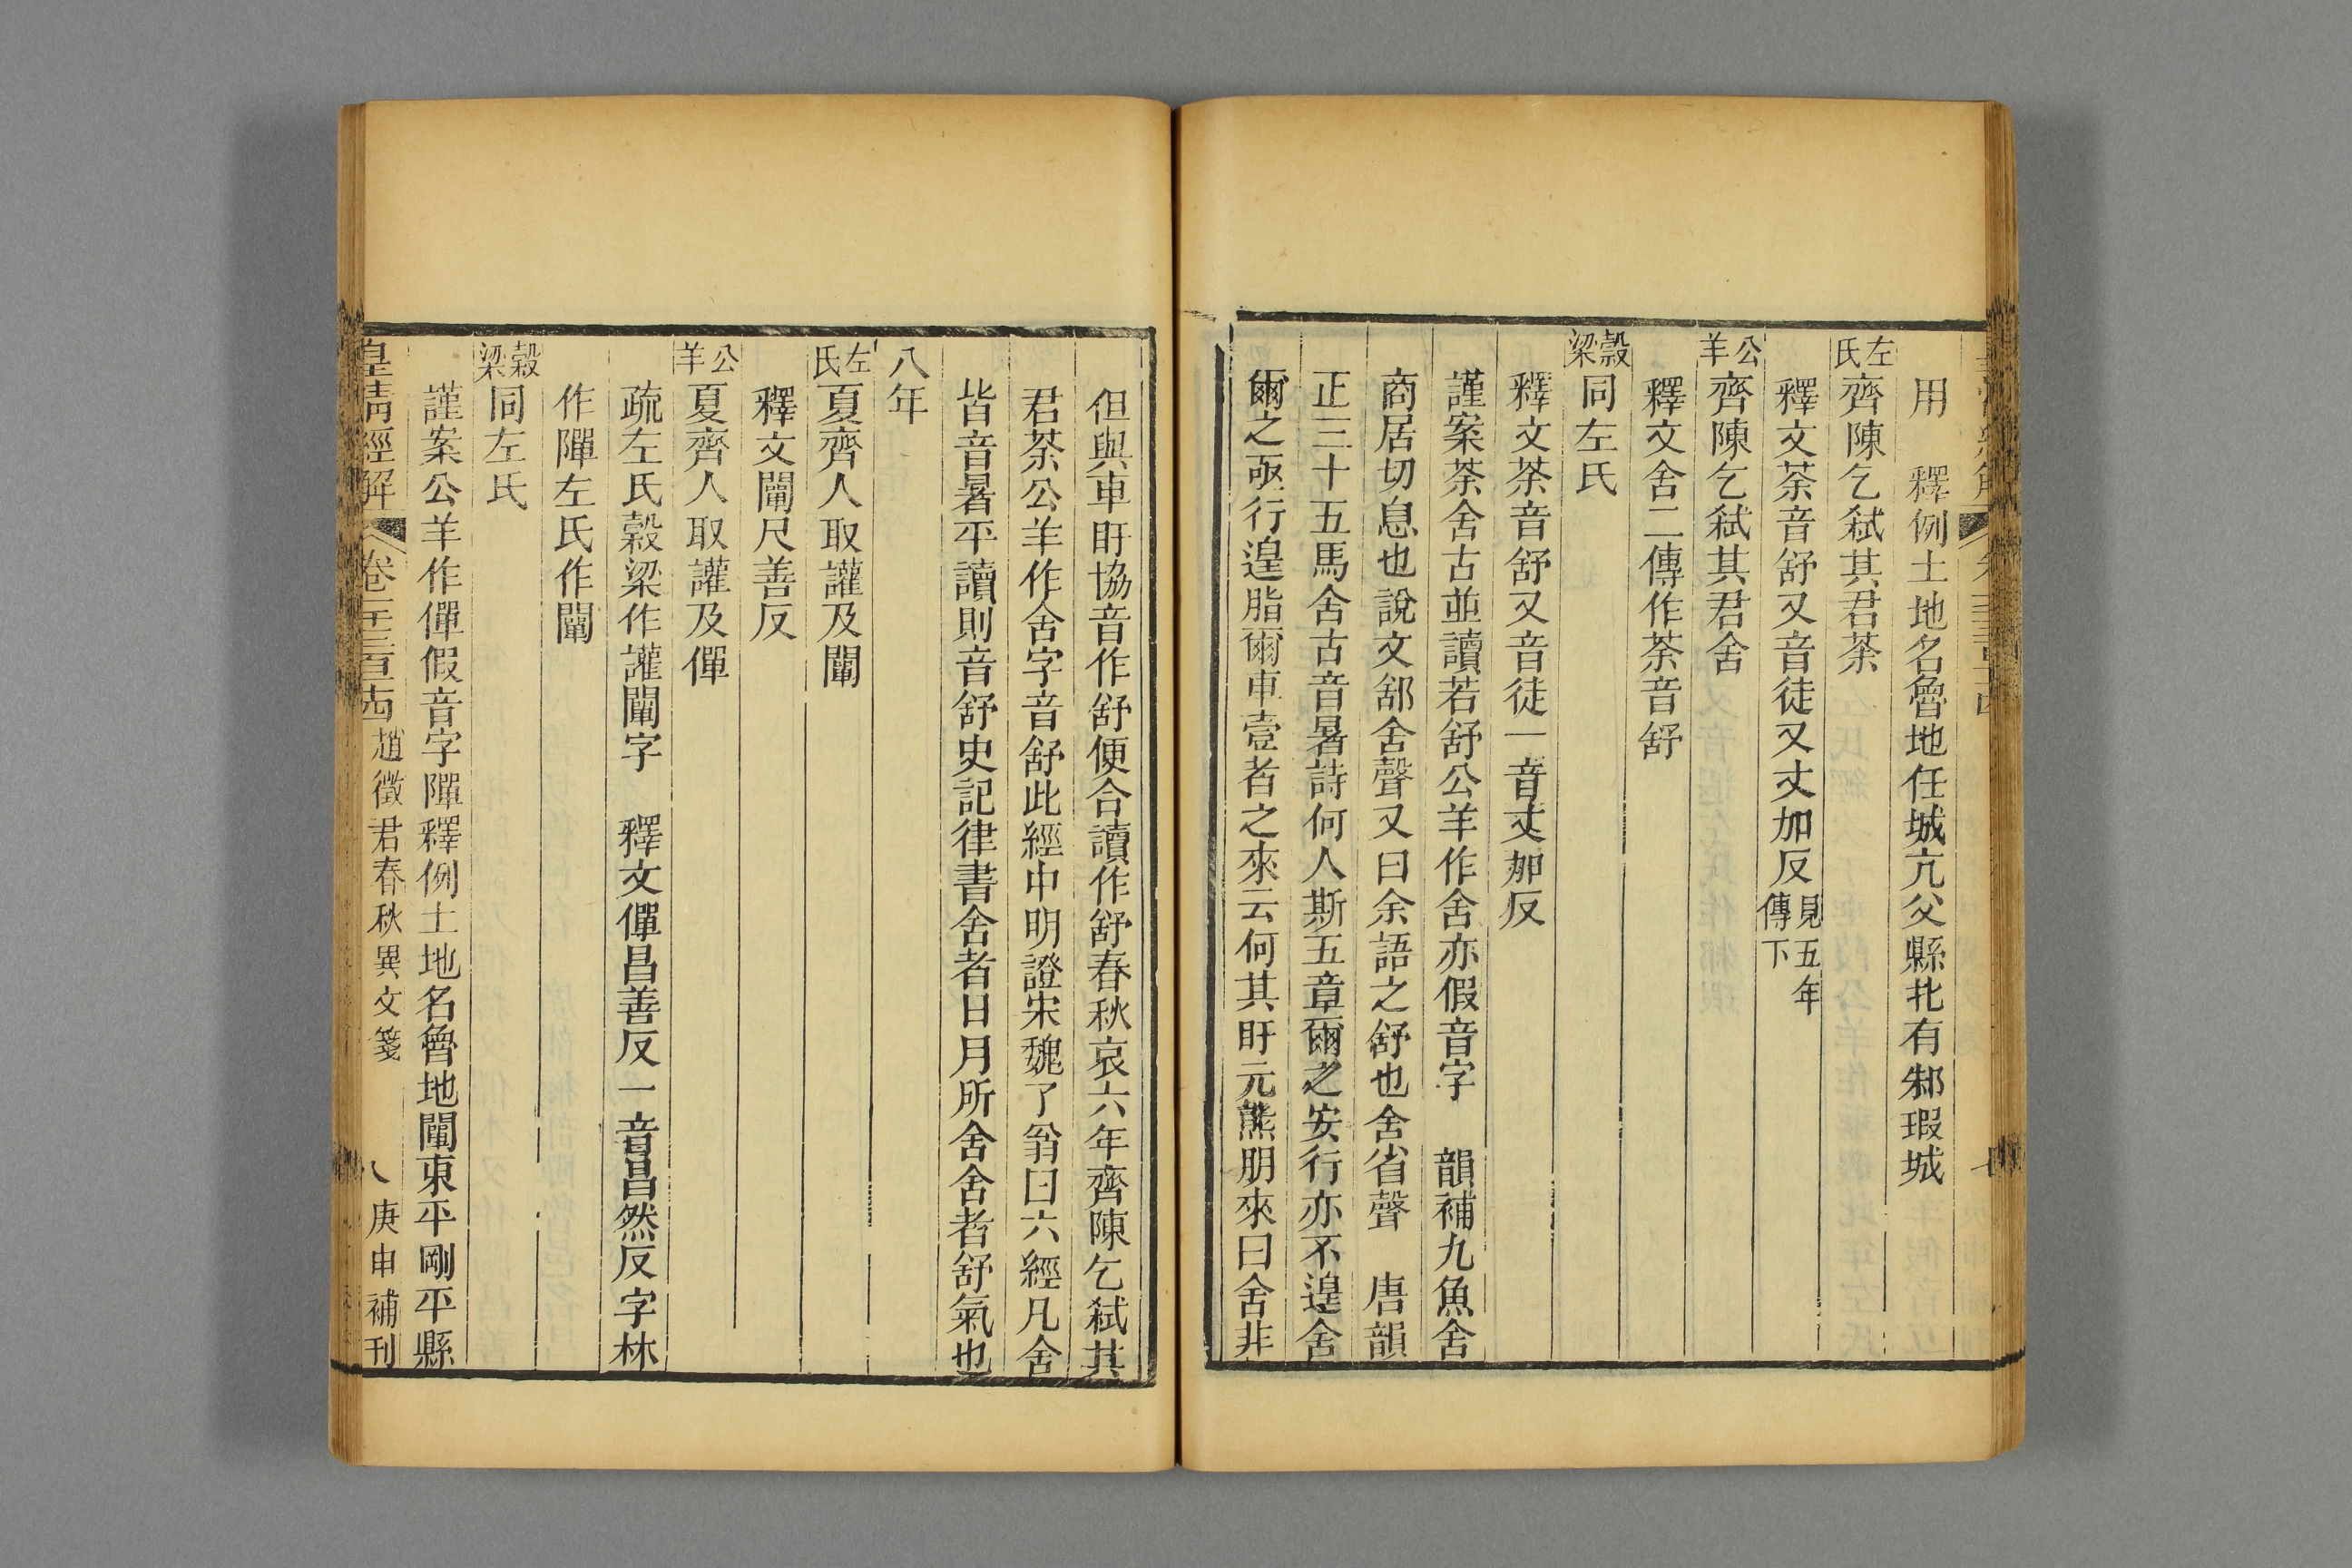 用　釋例土地名魯地任城亢父縣北有邾瑕城
左氏齊陳乞弑其君荼
釋文荼音舒又音徒又丈加反見五年傳下
公羊齊陳乞弑其君舍
釋文舍二傳作荼音舒
穀梁同左氏
釋文荼音舒又音徒一音丈加反
謹案荼舍古並讀若舒公羊作舍亦假音字　韻補九魚舍
商居切息也說文舒舍聲又曰余語之舒也舍省聲　唐韻
正三十五馬舍古音暑詩何人斯五章爾之安行亦不遑舍
爾之亟行遑脂爾車壹者之來云何其盱元熊朋來曰舍非
但與車盱協音作舒便合讀作舒春秋哀六年齊陳乞弑其
君荼公羊作舍字音舒此經中明證宋魏了翁曰六經凡舍
皆音暑平讀則音舒史記律書舍者日月所舍舍者舒氣也
八年
左氏夏齊人取讙及闡
釋文闡尺善反
公羊夏齊人取讙及僤
疏左氏穀梁作讙闡字　釋文僤昌善反一音昌然反字林
作㠆左氏作闡
穀梁同左氏
謹案公羊作僤假音字㠆釋例土地名魯地闡東平剛平縣
皇清經解　卷一千三百四　趙徵君春秋異文箋　八　庚申補刊